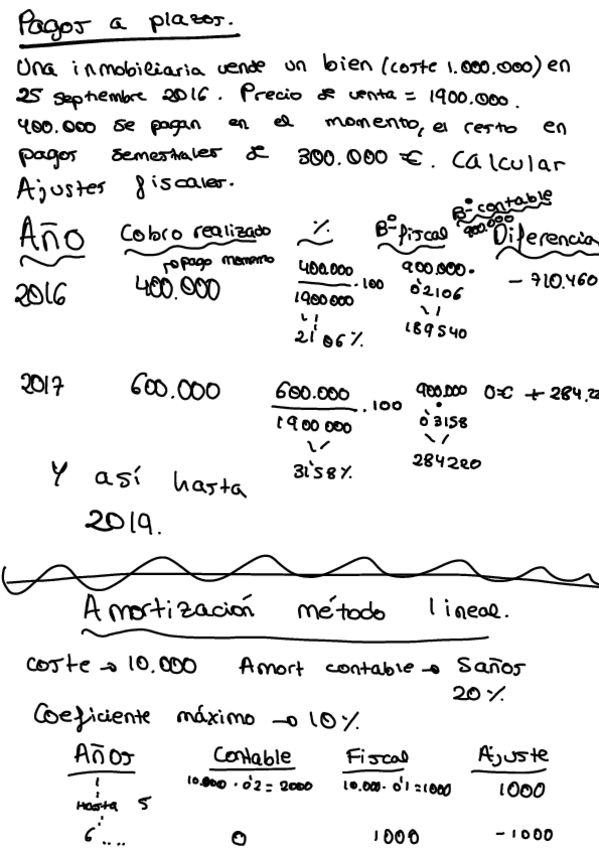 Pagos a plazos.
Una inmobiliaria vende un bien (coste 1.000.000) en
25 septiembre 2016. Precio de venta = 1900.000.
400.000 se pagan en el momento, el resto en
pagos semestrales de 300.000 €. Calcular
Ajustes fiscales.
Año Cobro realizado % Bº fiscal Bº contable 900.000 Diferencia
2016 400.000 pago momento 400.000 / 1900000 . 100 900.000 . 0'2106 - 710.460
21'06% 189540
2017 600.000 600.000 / 1900000 . 100 900.000 . 0'3158 0€ + 284.22
31'58% 284220
Y así hasta
2019.
Amortización método lineal.
coste → 10.000 Amort contable → 5años
20%
Coeficiente máximo → 10%
Años Contable Fiscal Ajuste
1 10.000 . 0'2 = 2000 10.000 . 0'1 = 1000 1000
Hasta 5
6.... 0 1000 -1000